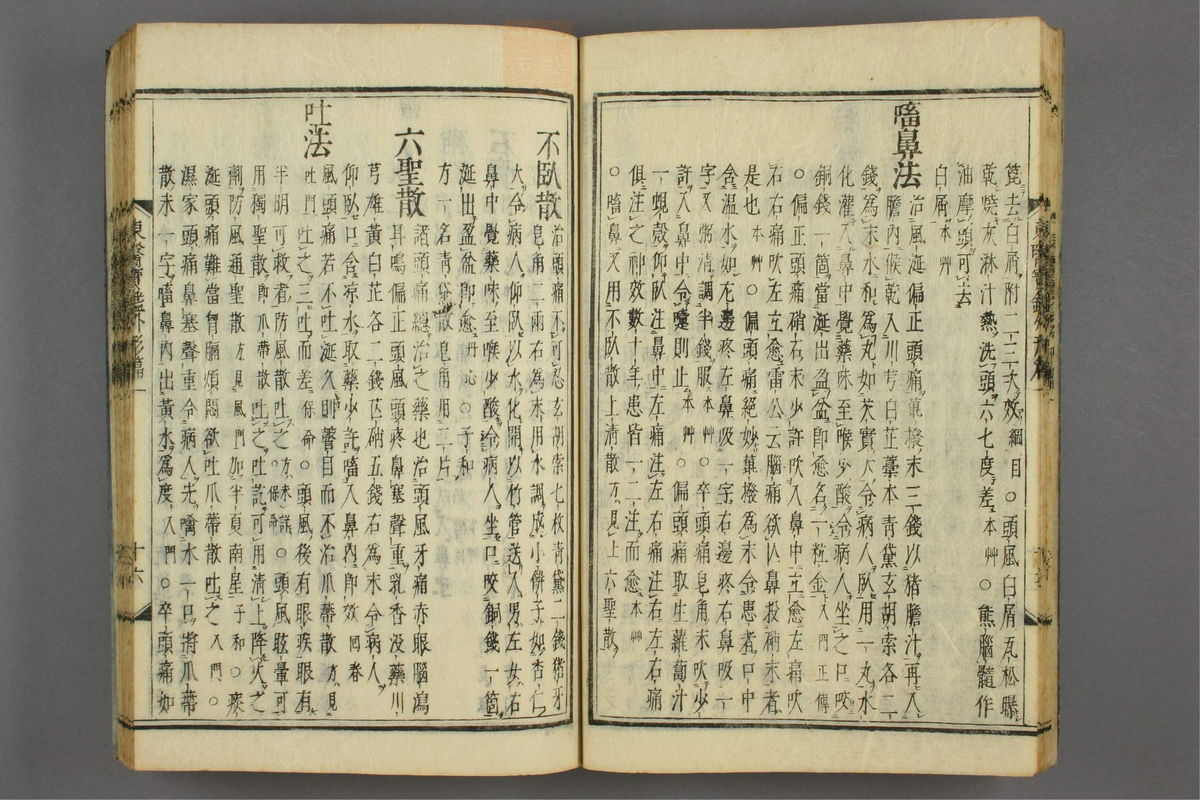 篦去白屑附二三大效綱目○頭風白屑瓦松曝
乾燒灰淋汁熱洗頭六七度差本艸○熊腦髓作
油摩頭可去
白屑本艸
㗜鼻法
治風涎偏正頭痛蓽撥末三錢以猪膽汁再入
膽內候乾入川芎白芷藁本靑黛玄胡索各二
錢爲末水和爲丸如芡實大令病人臥用一丸水
化灌入鼻中覺藥味至喉少酸令病人坐之口咬
銅錢一箇當涎出盈盆卽愈名一粒金入門正傳
○偏正頭痛硝石末少許吹入鼻中立愈左痛吹
右右痛吹左立愈雷公云腦痛欲亡鼻投硝末者
是也本艸○偏頭痛絶妙蓽撥爲末令患者口中
含溫水如左邊疼左鼻吸一字右邊疼右鼻吸一
字又粥淸調半錢服本艸○卒頭痛皂角末吹少
許入鼻中令嚔則止本艸○偏頭痛取生蘿蔔汁
一蜆殼仰臥注鼻中左痛注左右痛注右左右痛
俱注之神效數十年患皆一二注而愈本艸
○㗜鼻又用不臥散上淸散方見上六聖散
不臥散
治頭痛不可忍玄胡索七枚靑黛二錢猪牙
皂角二兩右爲末用水調成小餠子如杏仁
大令病人仰臥以水化開以竹管送入男左女右
鼻中覺藥味至喉少酸令病人坐口咬銅錢一箇
涎出盈盆卽愈丹心○子和
方一名靑黛散皂角用二片
六聖散
諸頭痛總治之藥也治頭風牙痛赤眼腦瀉
耳鳴偏正頭風頭疼鼻塞聲重乳香沒藥川
芎雄黃白芷各二錢芒硝五錢右爲末令病人
仰臥口含凉水取藥少許㗜入鼻內卽效回春
吐法
風頭痛若不吐涎久則瞽目而不治瓜蔕散方見
吐門吐之三吐而差保命○頭風後有眼疾眼有
半明可救者防風散吐之方未詳保命○頭風眩暈可
用獨聖散卽瓜蔕散吐之吐訖可用淸上降火之
劑防風通聖散方見風門加半夏南星子和○痰
涎頭痛難當胷膈煩悶欲吐瓜蔕散吐之入門○
濕家頭痛鼻塞聲重令病人先噙水一口將瓜蔕
散末一字㗜鼻內出黃水爲度入門○卒頭痛如
東醫寶鑑外形篇一
十六